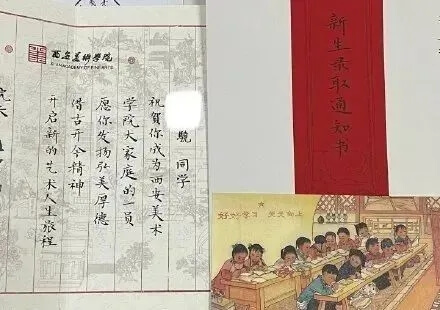 西安美術学院
XI'ANACADEMY OF FINE ARTS
同学
祝贺你成为西安美术
学院大家庭的一员
愿你发扬弘美厚德
借古开今精神
开启新的艺术人生旅程
新生录取通知书
好好学习 天天向上